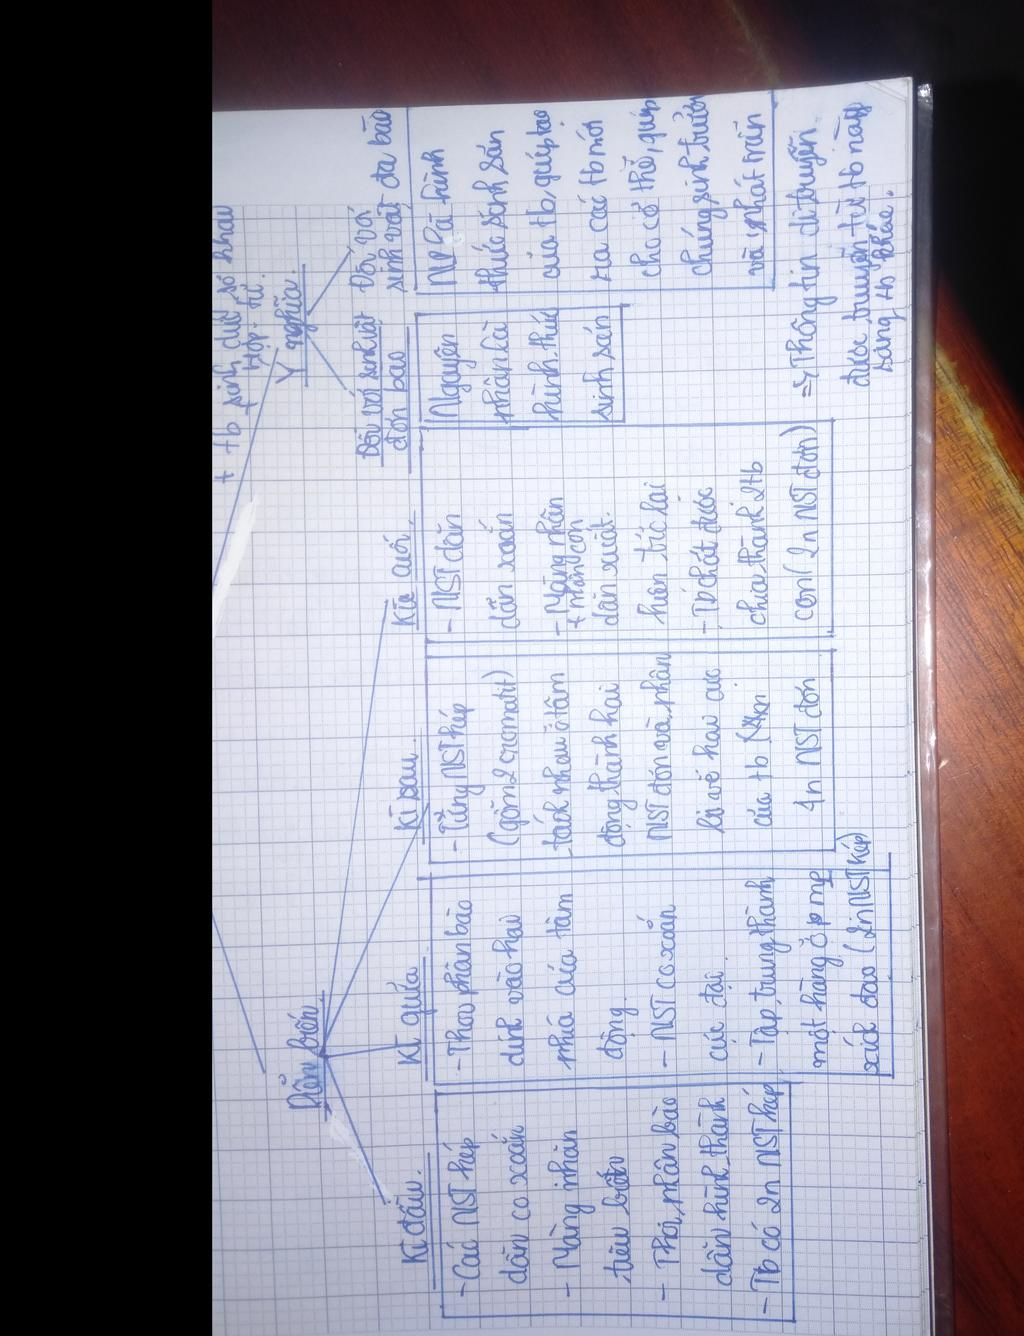 + tb sinh dục sơ khai
+ Hợp tử.
Ý nghĩa.
Diễn biến
Kì đầu.
- Các NST kép
dần co xoắn
- Màng nhân
tiêu biến
- Thoi phân bào
dần hình thành
- Tb có 2n NST kép
Kì giữa
- Thoi phân bào
đính vào hai
phía của tâm
động.
- NST co xoắn
cực đại.
- Tập trung thành
một hàng ở p mp
xích đạo (2n NST kép)
Kì sau.
- Từng NST kép
(gồm 2 cromatit)
tách nhau ở tâm
động thành hai
NST đơn và phân
li về hai cực
của tb
4n NST đơn
Kì cuối.
- NST dần
dãn xoắn
- Màng nhân
+ nhân con
dần xuất
hiện trở lại
- Tb chất được
chia thành 2 tb
con (2n NST đơn)
Đối với sinh vật
đơn bào
Nguyên
phân là
hình thức
sinh sản
Đối với
sinh vật đa bào
NP là hình
thức sinh sản
của tb, giúp tạo
ra các tb mới
cho cơ thể, giúp
chúng sinh trưởng
và phát triển
=> Thông tin di truyền
được truyền từ tb này
sang tb khác.